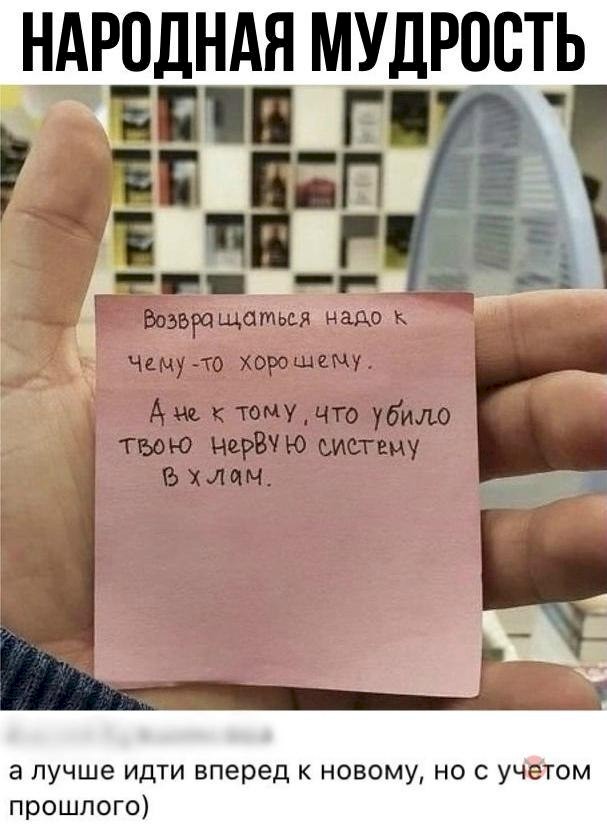 НАРОДНАЯ МУДРОСТЬ
Возвращаться надо к
чему-то хорошему.
А не к тому, что убило
твою нервную систему
в хлам.
а лучше идти вперед к новому, но с учетом
прошлого)